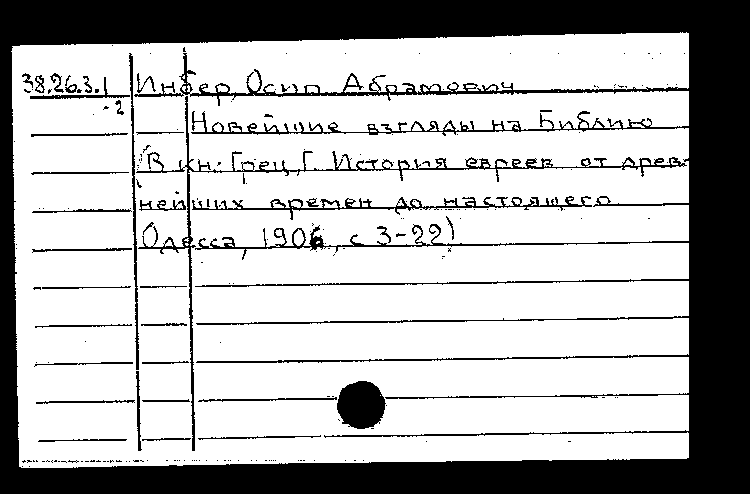 38.26.3.1 Инбер, Осип Абрамович
-2
Новейшие взгляды на Библию
(В кн: Грец, Г. История евреев от древ-
нейших времен до настоящего
Одесса, 1906, с 3-22)